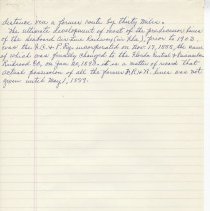 distance over a former route by thirty miles.
The ultimate development of most of the predecessor lines
of the Seaboard Air Line Railway (in Fla.), prior to 1903
was the F.R. & N. Ry. incorporated on Nov. 17, 1888, the name
of which was finally changed to the Florida Central & Peninsular
Railroad Co, on Jan 20, 1893. it is a matter of record that
actual possession of all the former F.R. & N. lines was not
given until May 1, 1889.